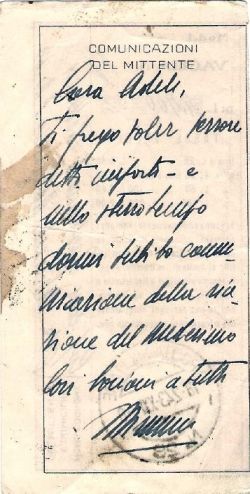 COMUNICAZIONI
DEL MITTENTE
Cara Adele,
Ti prego voler
detto importo - e
nello stesso tempo
darmi subito comu-
nicazione della
zione del medesimo
Con bacioni a tutti